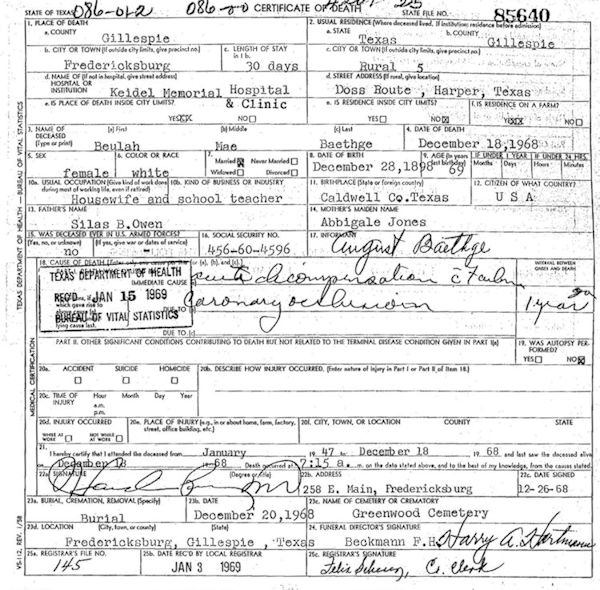 STATE OF TEXAS 086-01-2 086-20 CERTIFICATE OF DEATH STATE FILE NO. 85640
1. PLACE OF DEATH 2. USUAL RESIDENCE (Where deceased lived. If institution: residence before admission)
a. COUNTY a. STATE b. COUNTY
Gillespie Texas Gillespie
b. CITY OR TOWN (If outside city limits, give precinct no.) c. LENGTH OF STAY in 1 b. c. CITY OR TOWN (If outside city limits, give precinct no.)
Fredericksburg 30 days Rural 5
d. NAME OF (If not in hospital, give street address) HOSPITAL OR INSTITUTION d. STREET ADDRESS (If rural, give location)
Keidel Memorial Hospital & Clinic Doss Route , Harper, Texas
e. IS PLACE OF DEATH INSIDE CITY LIMITS? e. IS RESIDENCE INSIDE CITY LIMITS? f. IS RESIDENCE ON A FARM?
YES NO YES NO YES NO
3. NAME OF DECEASED (Type or print) (a) First (b) Middle (c) Last 4. DATE OF DEATH
Beulah Mae Baethge December 18,1968
5. SEX 6. COLOR OR RACE 7. Married Never Married Widowed Divorced 8. DATE OF BIRTH 9. AGE (In years last birthday) IF UNDER 1 YEAR Months Days IF UNDER 24 HRS. Hours Minutes
female white December 28,1898 69
10a. USUAL OCCUPATION (Give kind of work done during most of working life, even if retired) 10b. KIND OF BUSINESS OR INDUSTRY 11. BIRTHPLACE (State or foreign country) 12. CITIZEN OF WHAT COUNTRY?
Housewife and school teacher Caldwell Co.Texas U S A
13. FATHER'S NAME 14. MOTHER'S MAIDEN NAME
Silas B.Owen Abbigale Jones
15. WAS DECEASED EVER IN U.S. ARMED FORCES? (Yes, no, or unknown) (If yes, give war or dates of service) 16. SOCIAL SECURITY NO. 17. INFORMANT
no 456-60-4596 August Baethge
18. CAUSE OF DEATH (Enter only one cause per line for (a), (b), and (c).) INTERVAL BETWEEN ONSET AND DEATH
IMMEDIATE CAUSE
TEXAS DEPARTMENT OF HEALTH
REC'D JAN 15 1969
BUREAU OF VITAL STATISTICS
acute decompensation
Coronary occlusion 1 year
lying cause last. DUE TO (c)
PART II. OTHER SIGNIFICANT CONDITIONS CONTRIBUTING TO DEATH BUT NOT RELATED TO THE TERMINAL DISEASE CONDITION GIVEN IN PART I(a) 19. WAS AUTOPSY PERFORMED?
YES NO
20a. ACCIDENT SUICIDE HOMICIDE 20b. DESCRIBE HOW INJURY OCCURRED. (Enter nature of injury in Part I or Part II of Item 18.)
20c. TIME OF INJURY Hour a.m. p.m. Month Day Year
20d. INJURY OCCURRED WHILE AT WORK NOT WHILE AT WORK 20e. PLACE OF INJURY (e.g., in or about home, farm, factory, street, office building, etc.) 20f. CITY, TOWN, OR LOCATION COUNTY STATE
21. I hereby certify that I attended the deceased from January 19 47 to December 18 19 68 and last saw the deceased alive
on December 18 19 68 Death occurred at 7:15 a. m. on the date stated above, and to the best of my knowledge, from the causes stated.
22a. SIGNATURE (Degree or title) 22b. ADDRESS 22c. DATE SIGNED
258 E. Main, Fredericksburg 12-26-68
23a. BURIAL, CREMATION, REMOVAL (Specify) 23b. DATE 23c. NAME OF CEMETERY OR CREMATORY
Burial December 20,1968 Greenwood Cemetery
23d. LOCATION (City, town, or county) (State) 24. FUNERAL DIRECTOR'S SIGNATURE
Fredericksburg, Gillespie , Texas Beckmann F.H. Harry A. Hartmann
25a. REGISTRAR'S FILE NO. 25b. DATE REC'D BY LOCAL REGISTRAR 25c. REGISTRAR'S SIGNATURE
145 JAN 3 1969 Co. Clerk
TEXAS DEPARTMENT OF HEALTH — BUREAU OF VITAL STATISTICS
MEDICAL CERTIFICATION
VS-112, REV. 1/58